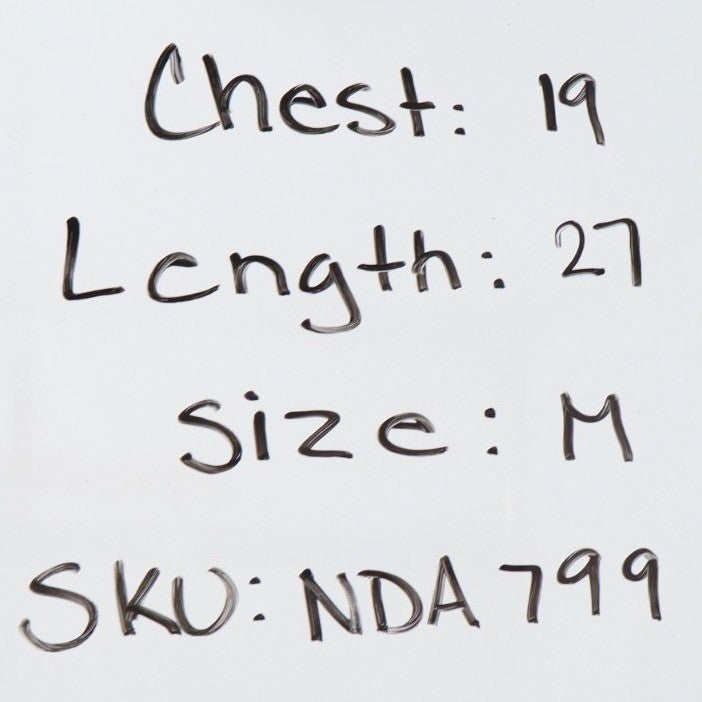 Chest: 19
Length: 27
Size: M
SKU: NDA 799